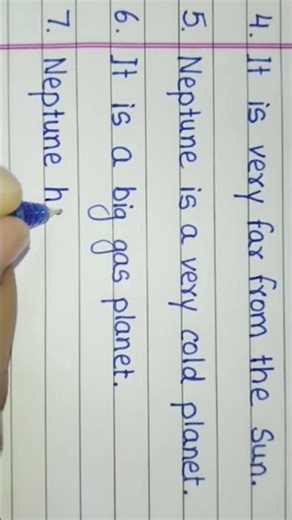 4. It is very far from the Sun.
5. Neptune is a very cold planet.
6. It is a big gas planet.
7. Neptune h